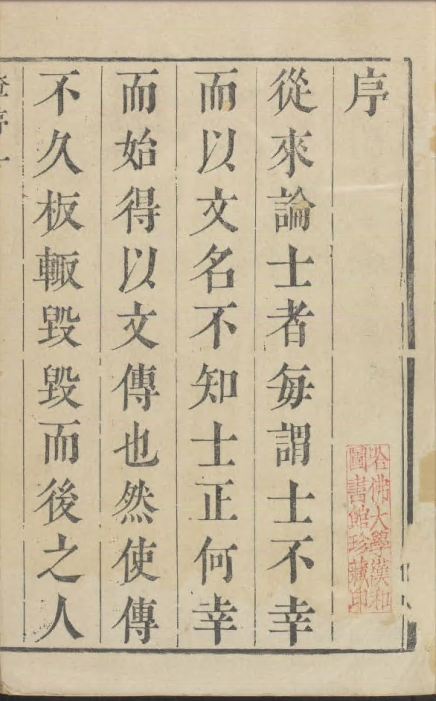 序
從來論士者每謂士不幸
而以文名不知士正何幸
而始得以文傳也然使傳
不久板輙毀毀而後之人
哈佛大學漢和
圖書館珍藏印
序一